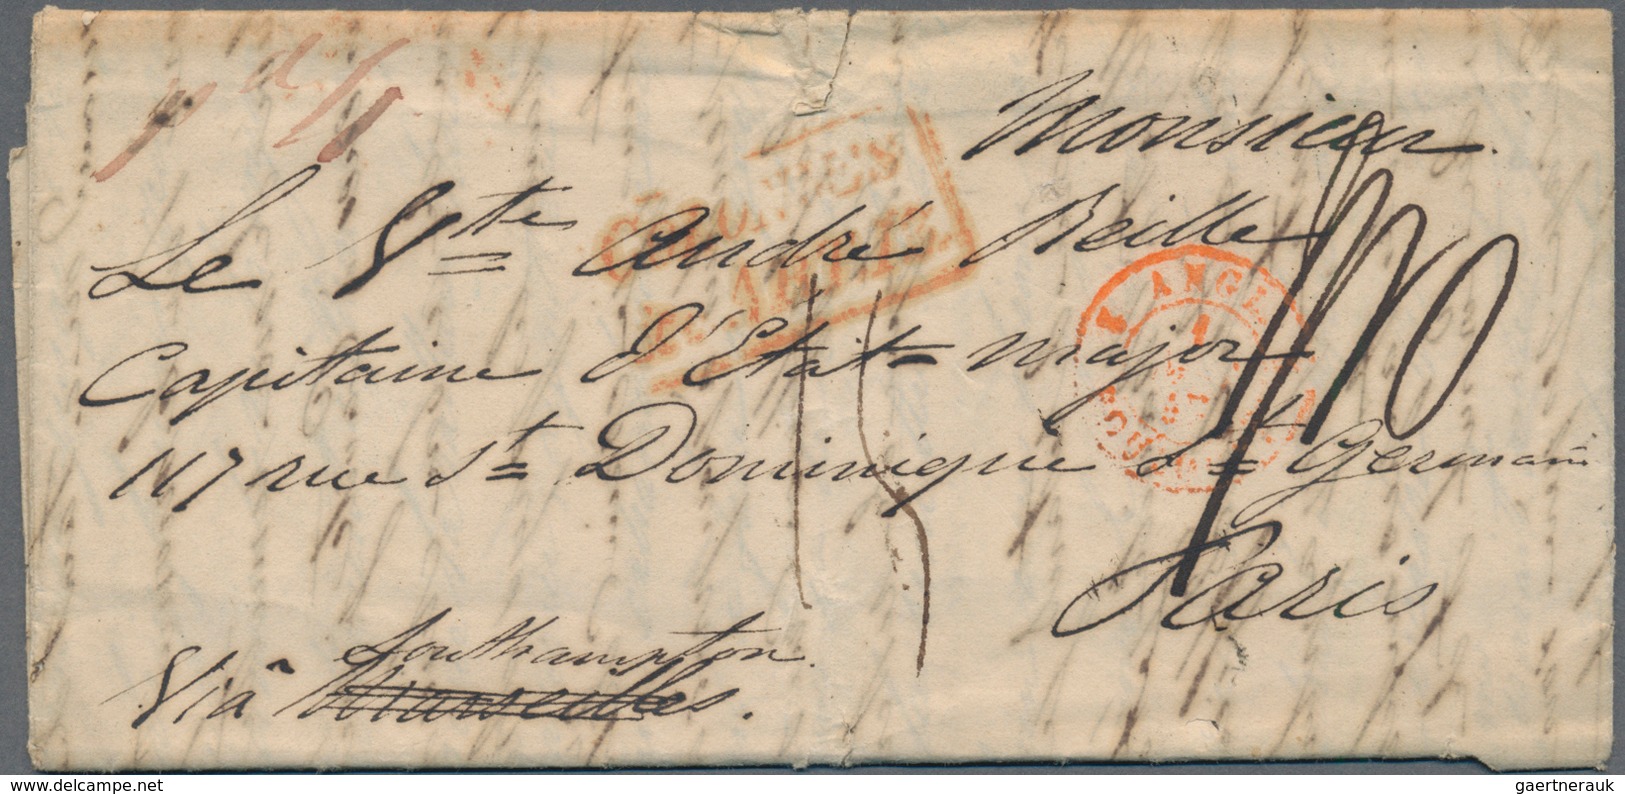 pd 1/
Monsieur.
Le Vte André Reille
Capitaine d'Etat=major
117 rue St Dominique St Germain
Paris
Southampton.
Viâ Marseilles.
COLONIES
ART.
ANGL.
1
15
delcampe.net
gaertnerauk